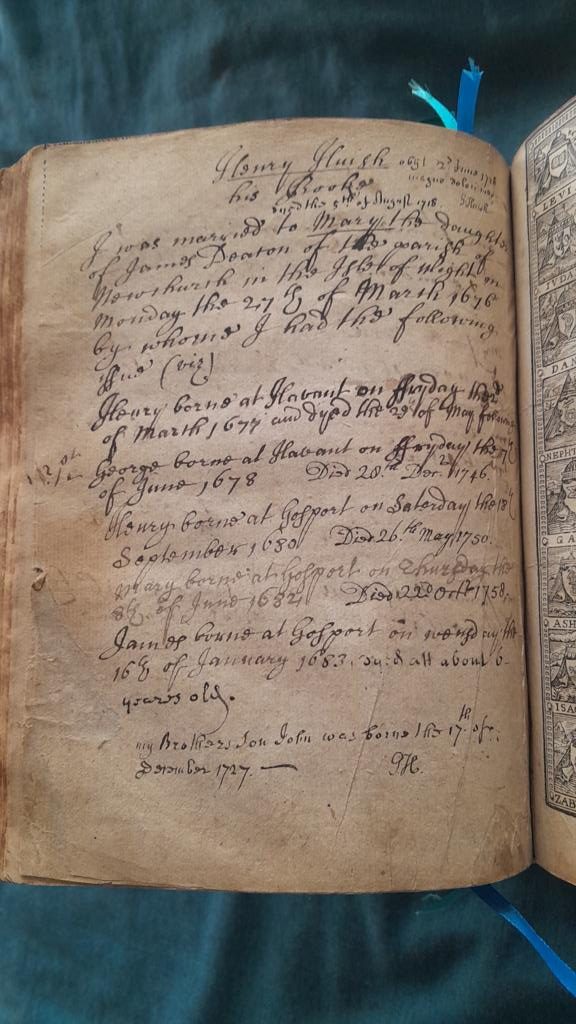 Henry Huish obijt 2d June 1718
his Booke magno dolore
dyed the 5th of August 1718.
I was married to Mary the daughter
of James Deaton of the parish of
Newchurch in the Isle of Wight on
Monday the 27th of March 1676
by whome I had the following
Issue (viz)
Henry borne at Havant on ffryday the
of March 1677 and dyed the 29 of May following
George borne at Havant on ffryday the 7th
of June 1678 Died 28th Decr. 1746.
Henry borne at Gosport on Saterday the 18th
September 1680 Died 26th May 1750.
Mary borne at Gosport on Thursday the
8th of June 1682 Died 22d Octr 1758.
James borne at Gosport on wensday the
16th of January 1683. dyed att about 6
years old.
my Brothers Son John was borne the 17th of
December 1727. GH.
LEVI
JUDA
DAN
NEPHT
GA
ASH
ISA
ZAB